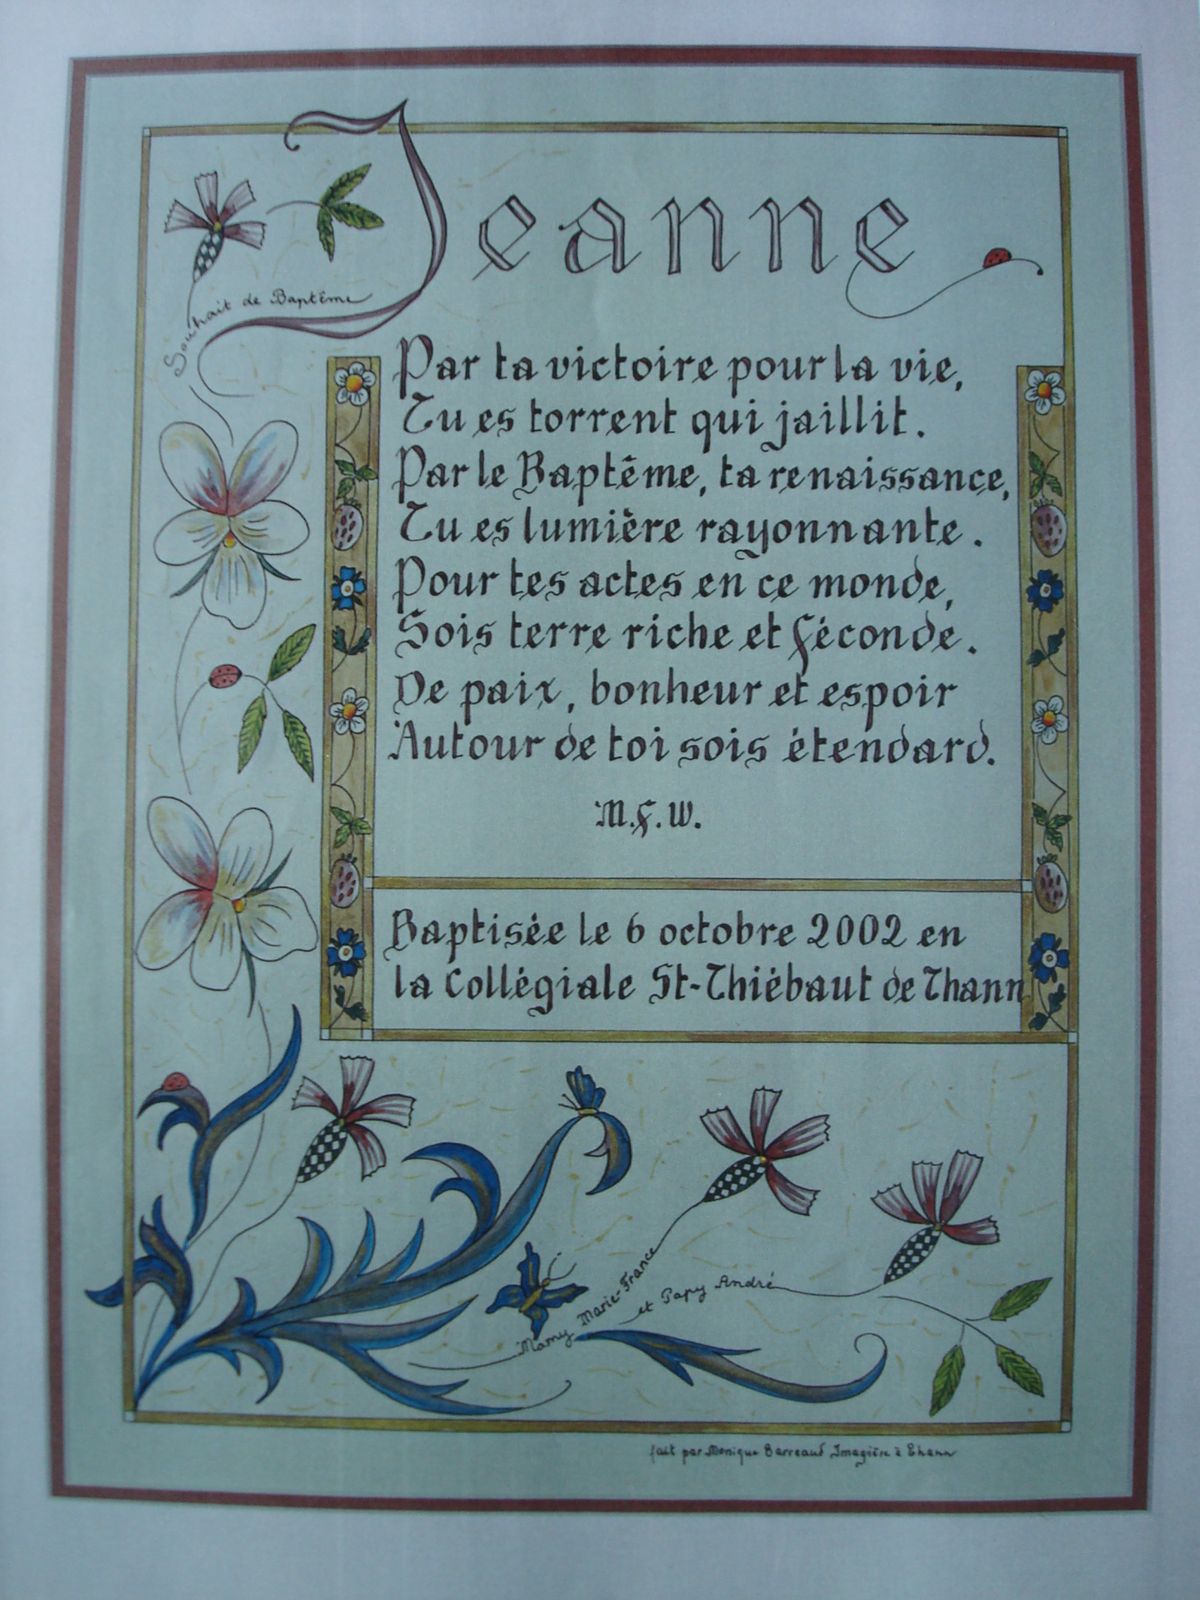 Jeanne
Souhait de Baptême
Par ta victoire pour la vie,
Tu es torrent qui jaillit.
Par le Baptême, ta renaissance,
Tu es lumière rayonnante.
Pour tes actes en ce monde,
Sois terre riche et féconde.
De paix, bonheur et espoir
Autour de toi sois étendard.
M.F.W.
Baptisée le 6 octobre 2002 en
la Collégiale St-Thiébaut de Thann
Mamy Marie-France
et Papy André
fait par Monique Barreaud Imagière à Thann